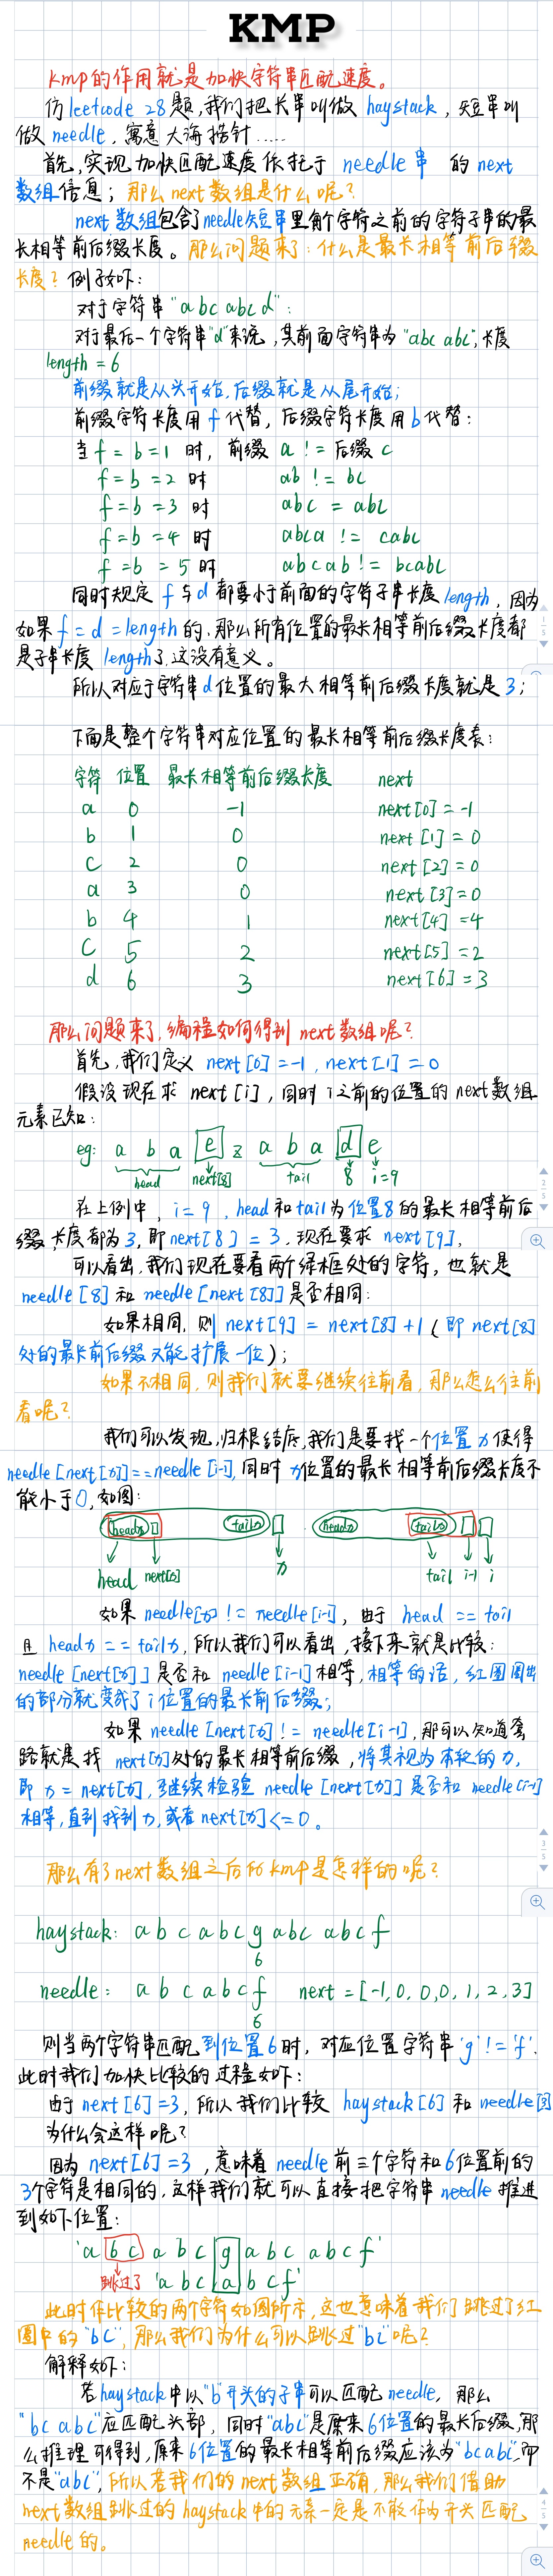 KMP
kmp的作用就是加快字符串匹配速度。
仿leetcode 28题,我们把长串叫做 haystack,短串叫
做 needle,寓意大海捞针……
首先,实现加快匹配速度依托于 needle串 的 next
数组信息;那么next数组是什么呢?
next数组包含了needle短串里每个字符之前的字符子串的最
长相等前后缀长度。那么问题来了:什么是最长相等前后缀
长度?例子如下:
对于字符串"abc abc d":
对于最后一个字符串"d"来说,其前面字符串为"abc abc",长度
length = 6
前缀就是从头开始,后缀就是从尾开始;
前缀字符长度用f代替,后缀字符长度用b代替:
当 f = b = 1 时, 前缀 a != 后缀 c
f = b = 2 时 ab != bc
f = b = 3 时 abc = abc
f = b = 4 时 abca != cabc
f = b = 5 时 abcab != bcabc
同时规定 f与d都要小于前面的字符子串长度length,因为
如果f = d = length的,那么所有位置的最长相等前后缀长度都
是子串长度 length了,这没有意义。
所以对应于字符串d位置的最大相等前后缀长度就是3;
下面是整个字符串对应位置的最长相等前后缀长度表:
字符 位置 最长相等前后缀长度 next
a 0 -1 next[0] = -1
b 1 0 next[1] = 0
c 2 0 next[2] = 0
a 3 0 next[3] = 0
b 4 1 next[4] = 4
c 5 2 next[5] = 2
d 6 3 next[6] = 3
那么问题来了,编程如何得到next数组呢?
首先,我们定义 next[0] = -1, next[1] = 0
假设现在求 next[i],同时i之前的位置的next数组
元素已知:
eg: a b a e z a b a d e
head next[8] tail 8 i=9
在上例中, i = 9, head和tail为位置8的最长相等前后
缀,长度都为3,即next[8] = 3,现在要求 next[9],
可以看出,我们现在要看两个绿框处的字符,也就是
needle[8]和needle[next[8]]是否相同:
如果相同,则 next[9] = next[8]+1(即next[8]
处的最长前后缀又能扩展一位);
如果不相同,则我们就要继续往前看,那么怎么往前
看呢?
我们可以发现,归根结底,我们是要找一个位置n使得
needle[next[n]]==needle[i-1],同时n位置的最长相等前后缀长度不
能小于0,如图:
headn tailn headn tailn
head next[n] n tail i-1 i
如果 needle[n] != needle[i-1], 由于 head == tail
且 headn == tailn,所以我们可以看出,接下来就是比较:
needle[next[n]]是否和needle[i-1]相等,相等的话,红圈圈出
的部分就变成了i位置的最长前后缀;
如果needle[next[n] != needle[i-1],那可以知道套
路就是找 next[n]处的最长相等前后缀,将其视为本轮的n,
即 n = next[n],继续检验 needle[next[n]]是否和needle[i-1]
相等,直到找到n,或者next[n]<=0。
那么有了next数组之后的kmp是怎样的呢?
haystack: a b c a b c g abc abc f
6
needle: a b c a b c f next = [-1, 0, 0, 0, 1, 2, 3]
6
则当两个字符串匹配到位置6时,对应位置字符串'g' != 'f'.
此时我们加快比较的过程如下:
由于next[6]=3,所以我们比较 haystack[6]和needle[3]
为什么会这样呢?
因为next[6]=3,意味着needle前三个字符和6位置前的
3个字符是相同的,这样我们就可以直接把字符串needle推进
到如下位置:
'a b c a b c g a b c a b c f'
跳过了 'a b c a b c f'
此时作比较的两个字符如图所示,这也意味着我们跳过了红
圈中的"bc",那么我们为什么可以跳过"bc"呢?
解释如下:
若haystack中以"b"开头的子串可以匹配needle,那么
"bc abc"应匹配头部,同时"abc"是原来6位置的最长后缀,那
么推理可得到,原来6位置的最长相等前后缀应该为"bcabc",而
不是"abc",所以若我们的next数组正确,那么我们借助
next数组跳过的haystack中的元素一定是不能作为开头匹配
needle的。